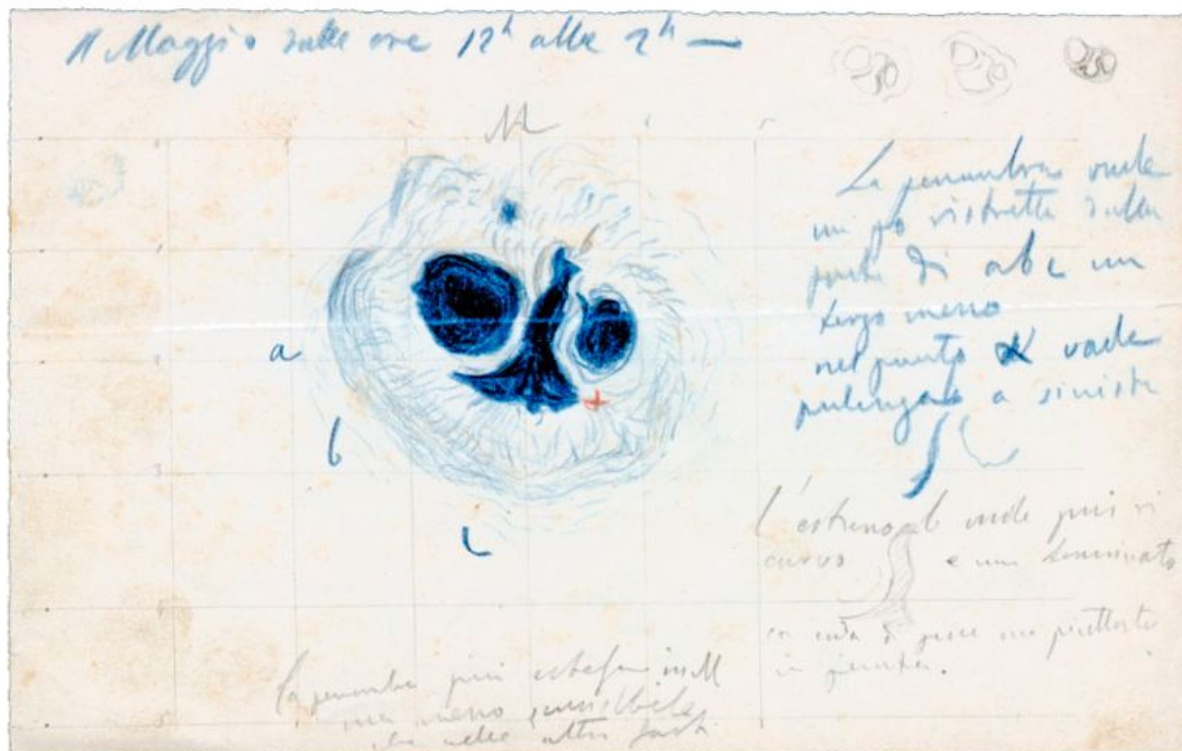 Maggio dalle ore 12h alle 2h —
M
La penumbra vuole
un po ristretta dalla
parte di abc un
terzo meno
nel punto vuole
a sinistra
b
a
b
c
L'estremo b vuole più
curvo e non terminato
coda di pesce ma piuttosto
in
La penumbra più estesa in M
ma meno sensibile
che nelle altre parti